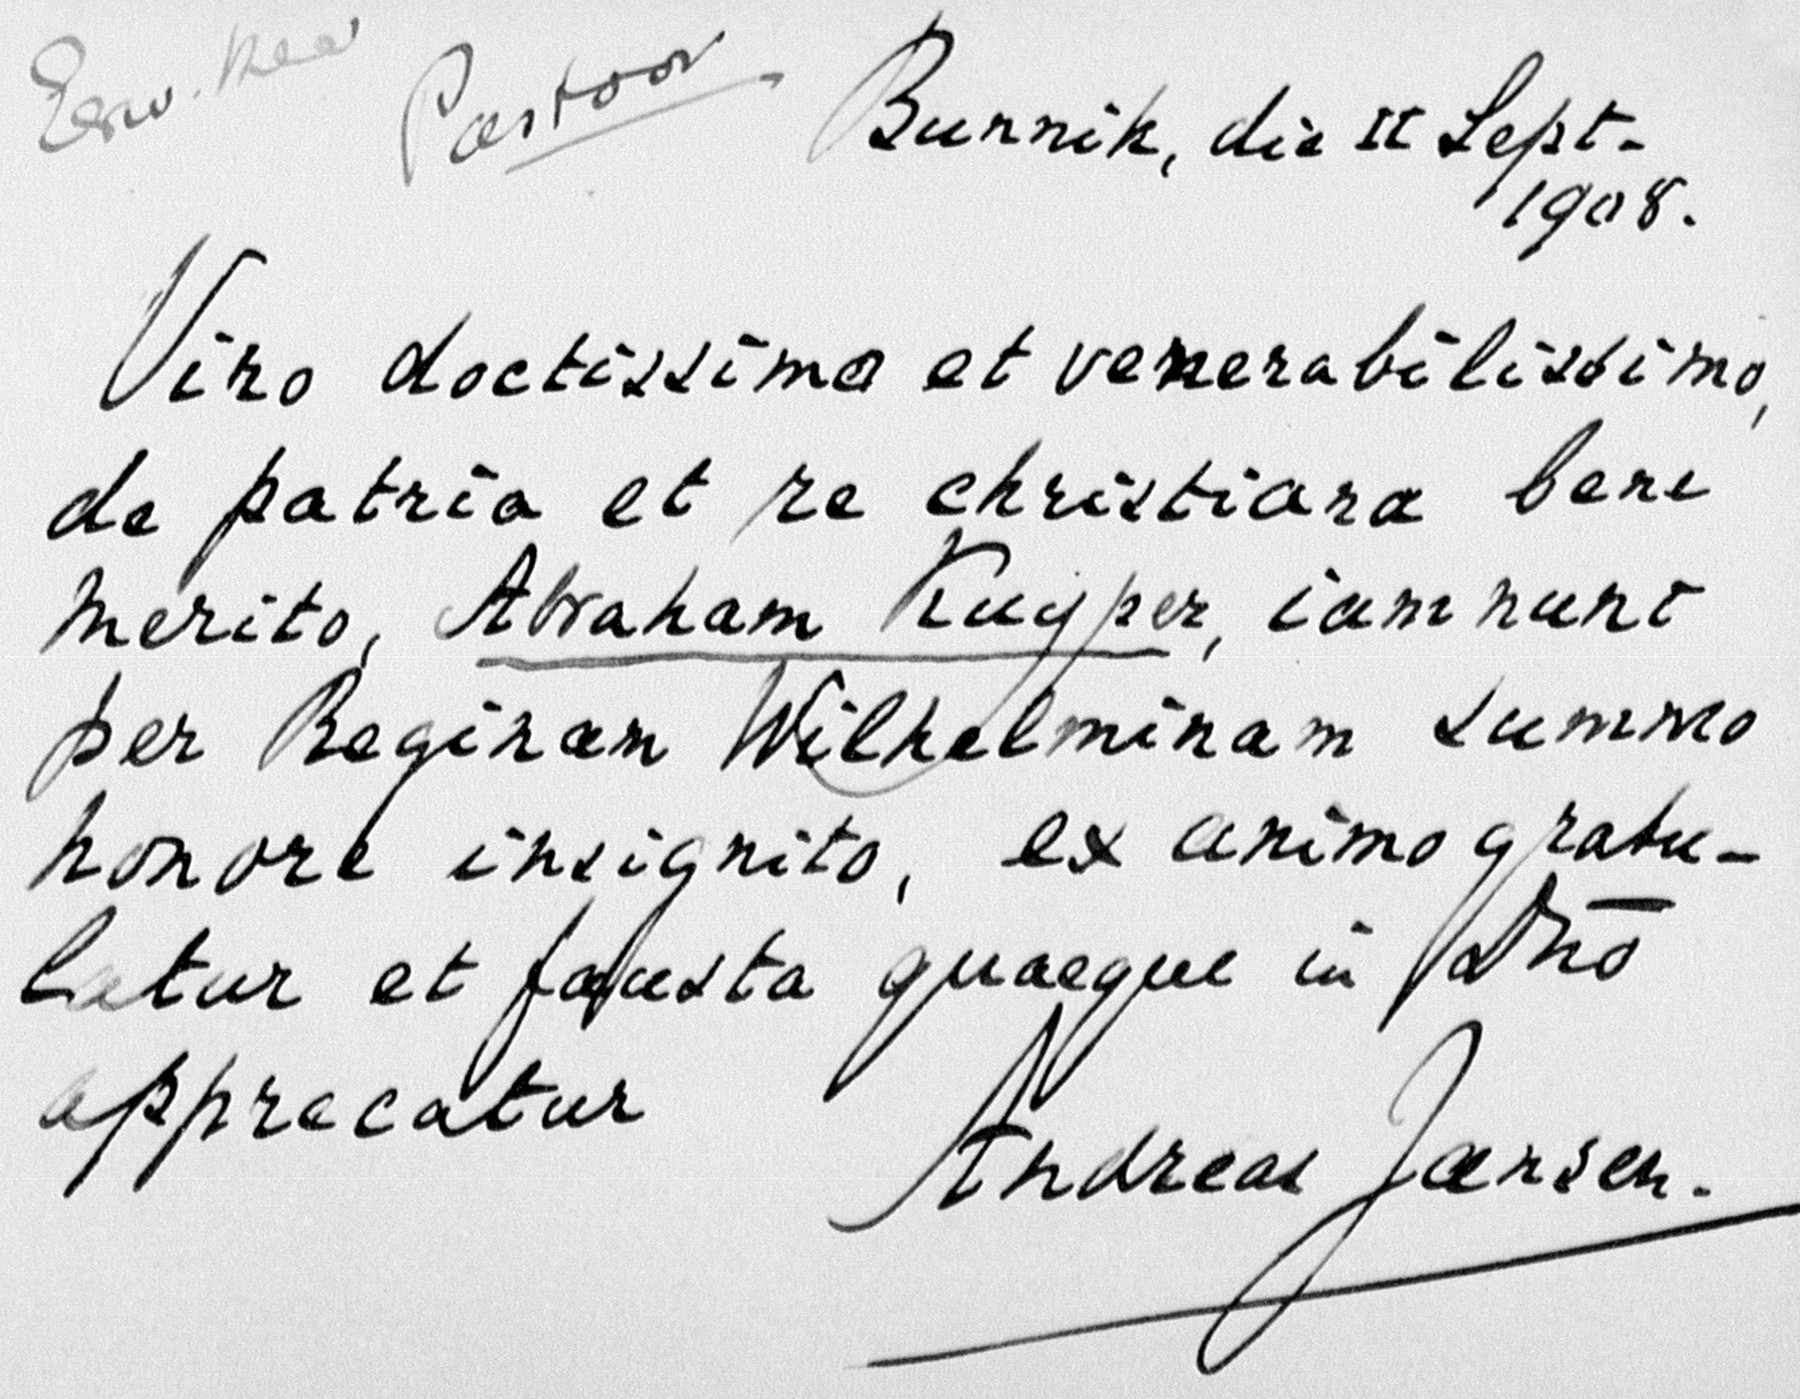 Eerw. Heer Pastoor
Bunnik, die II Sept.
1908.
Viro doctissimo et venerabilissimo,
de patria et re christiana bene
merito, Abraham Kuyper, iam nunc
per Reginam Wilhelminam summo
honore insignito, ex animo gratu-
latur et fausta quaeque in Dn̄o
apprecatur
Andreas Jansen.